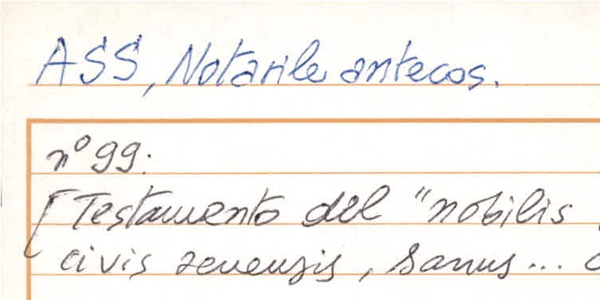 ASS, Notarile antecos.
n° 99:
[Testamento del "nobilis
civis senensis, sanus...